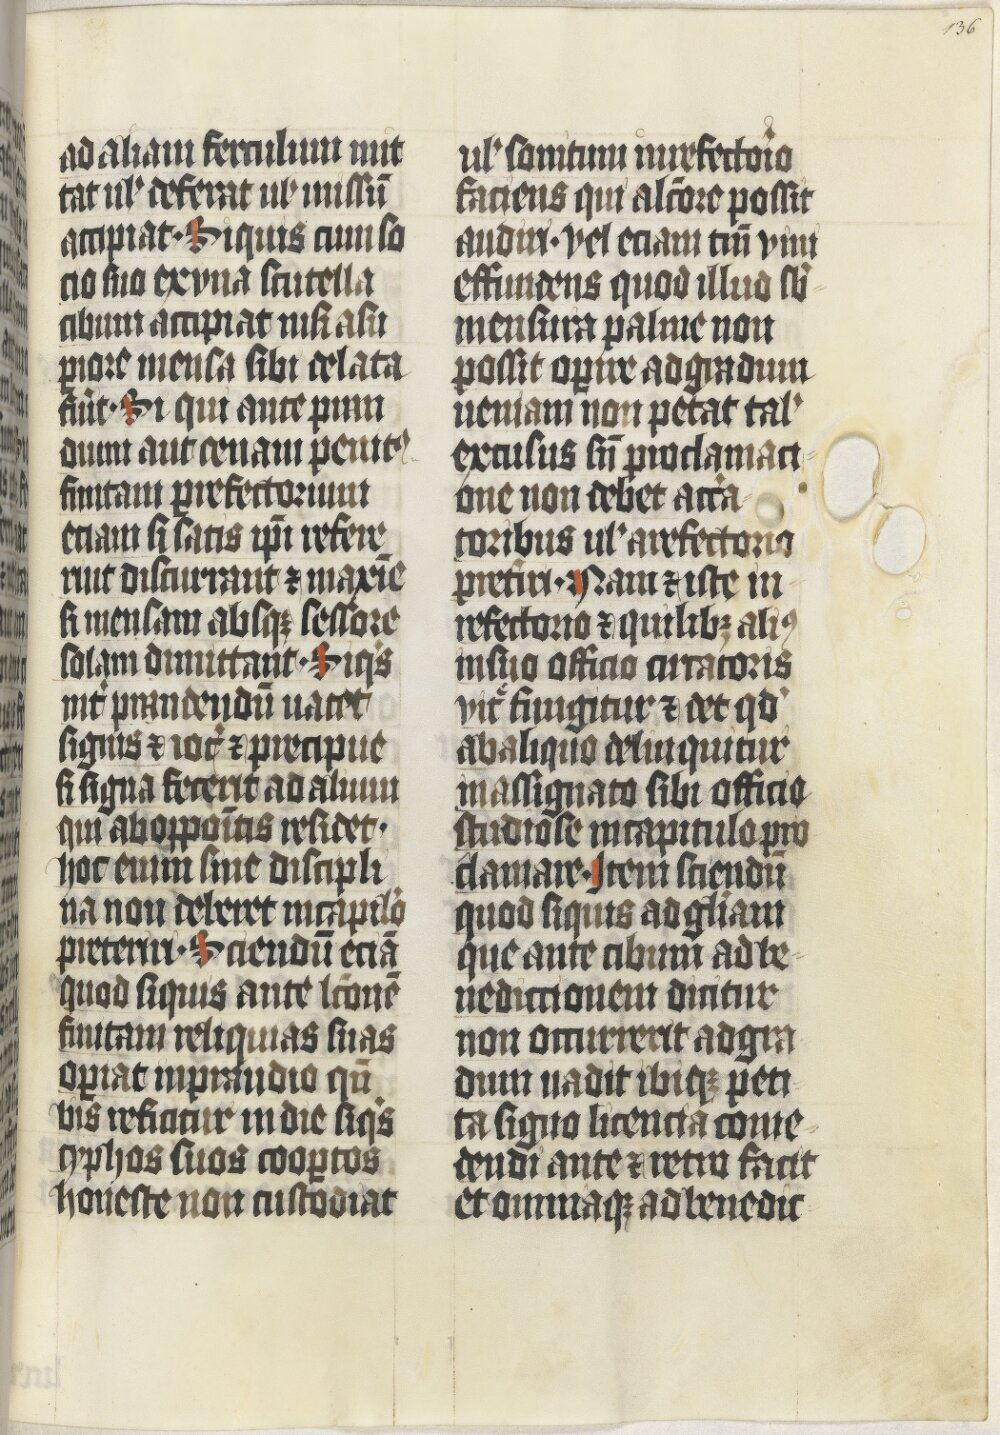 136
ad aliam ferculum mit
tat ul' deferat ul' missū
accipiat · Siquis cum so
cio suo ex vna scutella
cibum accipiat nisi a su
piore mensa sibi delata
fūit · Si qui ante pran
dium aut cenam penit9
finitam prefectorium
eciam si satis ipī refere
rint discurrant ⁊ maxīe
si mensam absqꝫ sessore
solam dimittant · Siq's
int' prandendū uacet
signis ⁊ ioc' ⁊ precipue
si signa fecerit ad alium
qui ab oppoitis residet ·
hoc enim sine discipli
na non deberet in capitlo
preteriri · Sciendū eciā
quod siquis ante lc̄onē
finitam reliquias suas
opiat in prandio qū
bis reficitur in die siq's
cyphos suos coop̄tos
honeste non custodiat
ul' sonitum in refectorio
faciens qui alc̄ore possit
audiri · vel eciam tm̄ vini
effundens quod illud sb̄
mensura palme non
possit opire ad gradum
ueniam non petat tal'
excusus sn̄ proclamaci
one non debet acc'a
toribus ul' a refectorio
preiri · Nam ⁊ iste in
refectorio ⁊ quilibꝫ ali9
in suo officio curatoris
vic' fungitur ⁊ det qd'
ab aliquo delinquitur
in assignato sibi officio
studiose in capitulo pro
clamare · Item sciendū
quod siquis ad gl̄iam
que ante cibum ad be
nediccionem dicitur
non occurrerit ad gra
dum uadit ibiqꝫ peti
ta signo licencia come
dendi ante ⁊ retro facit
et omniaqꝫ ad benedic